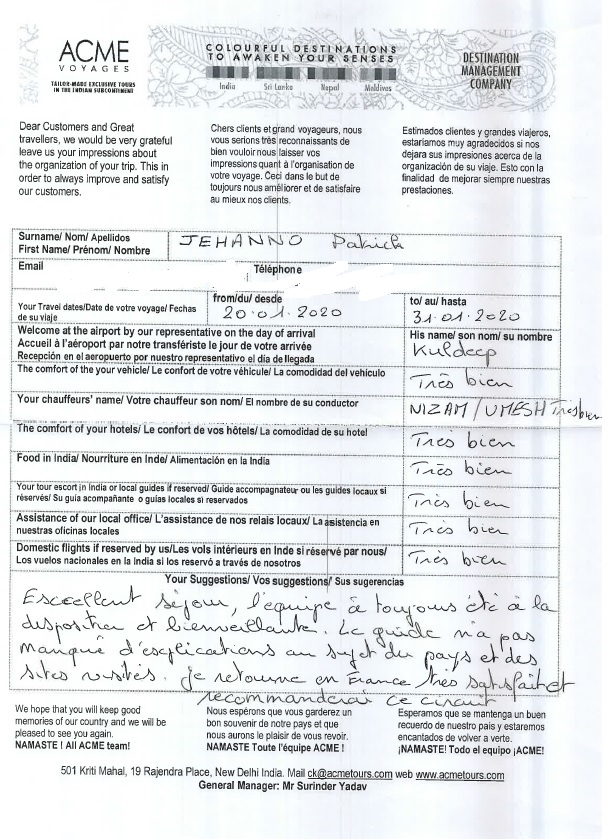 ACME
VOYAGES
TAILOR-MADE EXCLUSIVE TOURS
IN THE INDIAN SUBCONTINENT
COLOURFUL DESTINATIONS
TO AWAKEN YOUR SENSES
India Sri Lanka Nepal Maldives
DESTINATION
MANAGEMENT
COMPANY
Dear Customers and Great
travellers, we would be very grateful
leave us your impressions about
the organization of your trip. This in
order to always improve and satisfy
our customers.
Chers clients et grand voyageurs, nous
vous serions très reconnaissants de
bien vouloir nous laisser vos
impressions quant à l'organisation de
votre voyage. Ceci dans le but de
toujours nous améliorer et de satisfaire
au mieux nos clients.
Estimados clientes y grandes viajeros,
estaríamos muy agradecidos si nos
dejara sus impresiones acerca de la
organización de su viaje. Esto con la
finalidad de mejorar siempre nuestras
prestaciones.
Surname/ Nom/ Apellidos
First Name/ Prénom/ Nombre
JEHANNO Patrick
Email
Téléphone
Your Travel dates/Date de votre voyage/ Fechas
de su viaje
from/du/ desde
20.01.2020
to/ au/ hasta
31.01.2020
Welcome at the airport by our representative on the day of arrival
Accueil à l'aéroport par notre transfériste le jour de votre arrivée
Recepción en el aeropuerto por nuestro representativo el día de llegada
His name/ son nom/ su nombre
Kuldeep
The comfort of the your vehicle/ Le confort de votre véhicule/ La comodidad del vehículo
Très bien
Your chauffeurs' name/ Votre chauffeur son nom/ El nombre de su conductor
NIZAM / UMESH Très bien
The comfort of your hotels/ Le confort de vos hôtels/ La comodidad de su hotel
Très bien
Food in India/ Nourriture en Inde/ Alimentación en la India
Très bien
Your tour escort in India or local guides if reserved/ Guide accompagnateur ou les guides locaux si
réservés/ Su guía acompañante o guías locales si reservados
Très bien
Assistance of our local office/ L'assistance de nos relais locaux/ La asistencia en
nuestras oficinas locales
Très bien
Domestic flights if reserved by us/Les vols intérieurs en Inde si réservé par nous/
Los vuelos nacionales en la India si los reservó a través de nosotros
Très bien
Your Suggestions/ Vos suggestions/ Sus sugerencias
Excellent séjour, l'équipe à toujours été à la
disposition et bienveillante. Le guide n'a pas
manqué d'explications au sujet du pays et des
sites visités. je retourne en France très satisfait et
recommanderai ce circuit
We hope that you will keep good
memories of our country and we will be
pleased to see you again.
NAMASTE ! All ACME team!
Nous espérons que vous garderez un
bon souvenir de notre pays et que
nous aurons le plaisir de vous revoir.
NAMASTE Toute l'équipe ACME !
Esperamos que se mantenga un buen
recuerdo de nuestro país y estaremos
encantados de volver a verte.
¡NAMASTE! Todo el equipo ¡ACME!
501 Kriti Mahal, 19 Rajendra Place, New Delhi India. Mail ck@acmetours.com web www.acmetours.com
General Manager: Mr Surinder Yadav